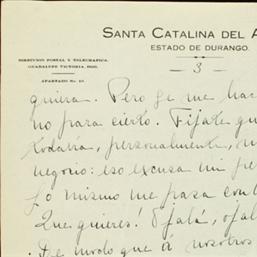 SANTA CATALINA DEL A
ESTADO DE DURANGO.
DIRECCION POSTAL Y TELEGRAFICA.
GUADALUPE VICTORIA, DGO.
APARTADO No. 10
— 3 —
quiera. Pero se me hac
no para cierto. Fíjate que
todavía, personalmente, m
negocio: eso excusa mi pe
Lo mismo me pasa con t
Que quieres! Ojalá, ojal
De modo que á nosotros